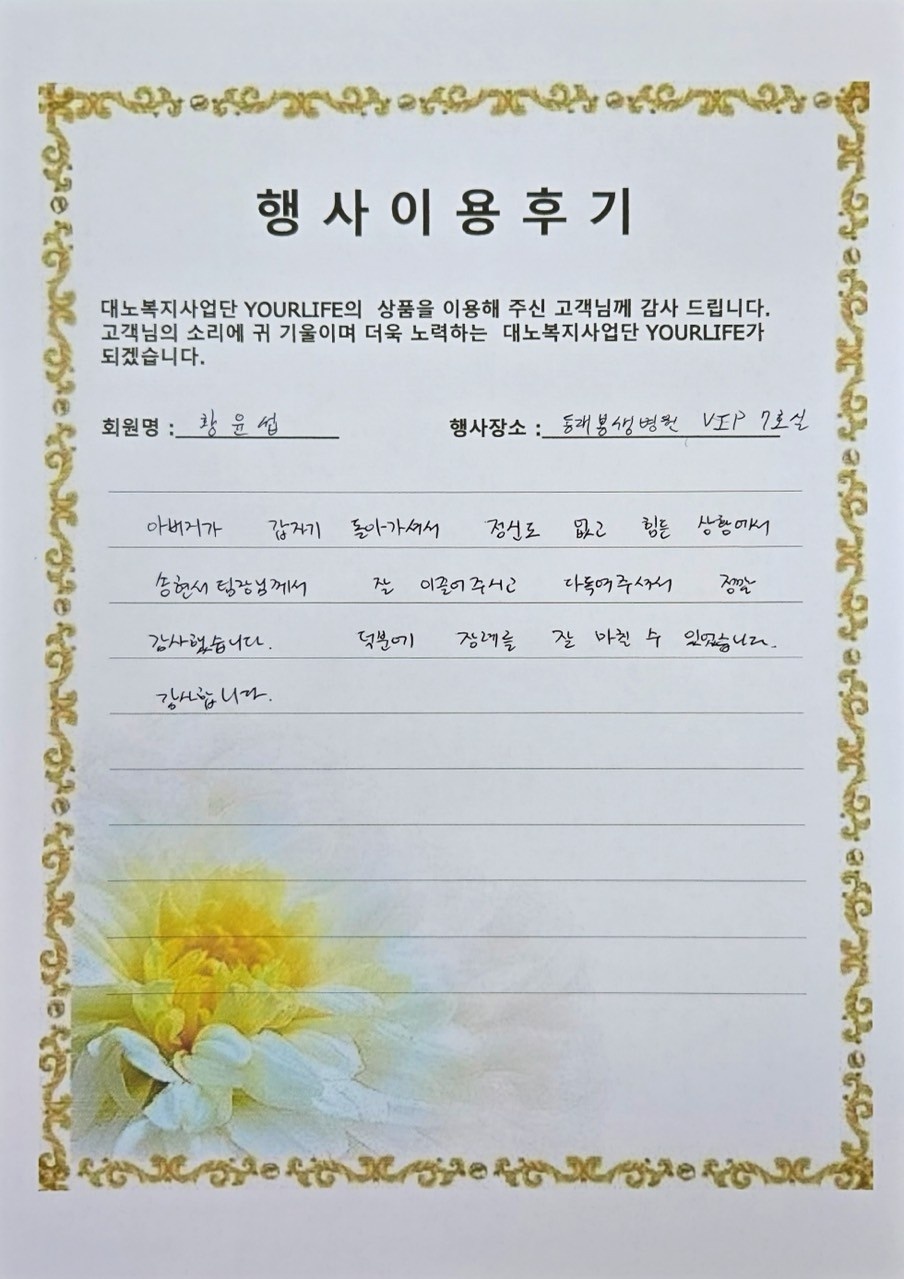 행사이용후기
대노복지사업단 YOURLIFE의 상품을 이용해 주신 고객님께 감사 드립니다.
고객님의 소리에 귀 기울이며 더욱 노력하는 대노복지사업단 YOURLIFE가
되겠습니다.
회원명 : 황윤섭 행사장소 : 동래봉생병원 VIP 7호실
아버지가 갑자기 돌아가셔서 정신도 없고 힘든 상황에서
송현서 팀장님께서 잘 이끌어주시고 다독여주셔서 정말
감사했습니다. 덕분에 장례를 잘 마칠 수 있었습니다.
감사합니다.